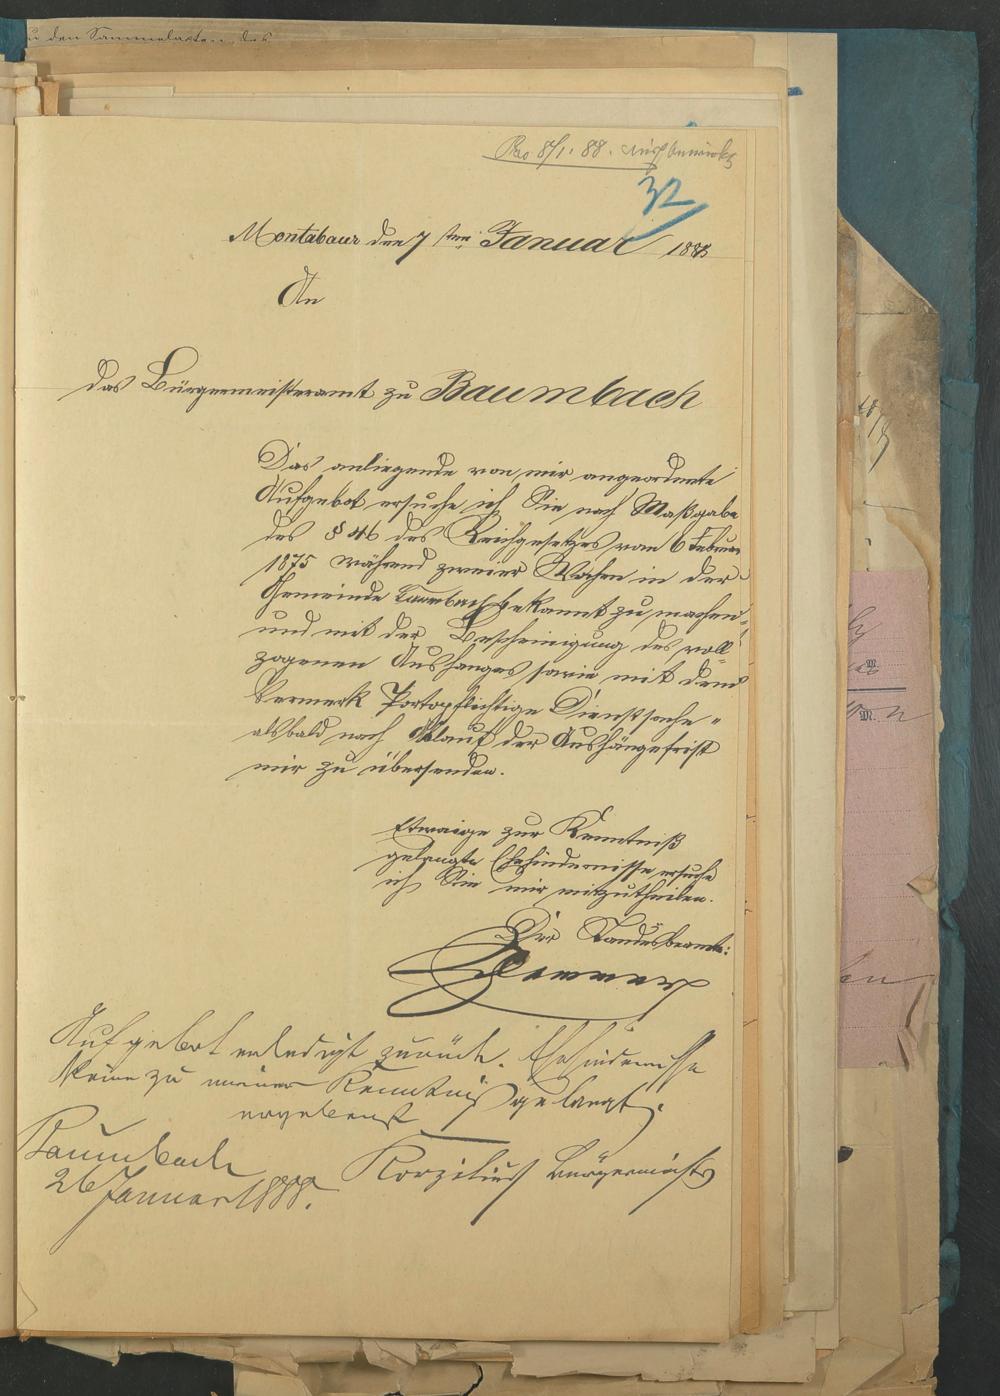 zu den Sammelakten des
8/1. 88.
32
Montabaur den 7 ten Januar 1888
An
das Bürgermeisteramt zu Baumbach
Das anliegende von mir angeordnete
Aufgebot ersuche ich Sie nach Maßgabe
des § 46 des Reichgesetzes vom 6 Februar
1875 während zweier Wochen in der
Gemeinde Baumbach bekannt zu machen
und mit der Bescheinigung des voll
zogenen Aushanges sowie mit dem
Vermerk Portopflichtige Dienstsache "
alsbald nach Ablauf der Aushängefrist
mir zu übersenden.
Etwaige zur Kenntniß
gelangte Ehehindernisse ersuche
ich Sie mir mitzutheilen.
Der Standesbeamte:
Aufgebot erledigt zurück. Ehehindernisse
keine zu meiner Kenntniß gelangt.
ergebenst
Baumbach
26 Januar 1888.
Korzilius Bürgermeister